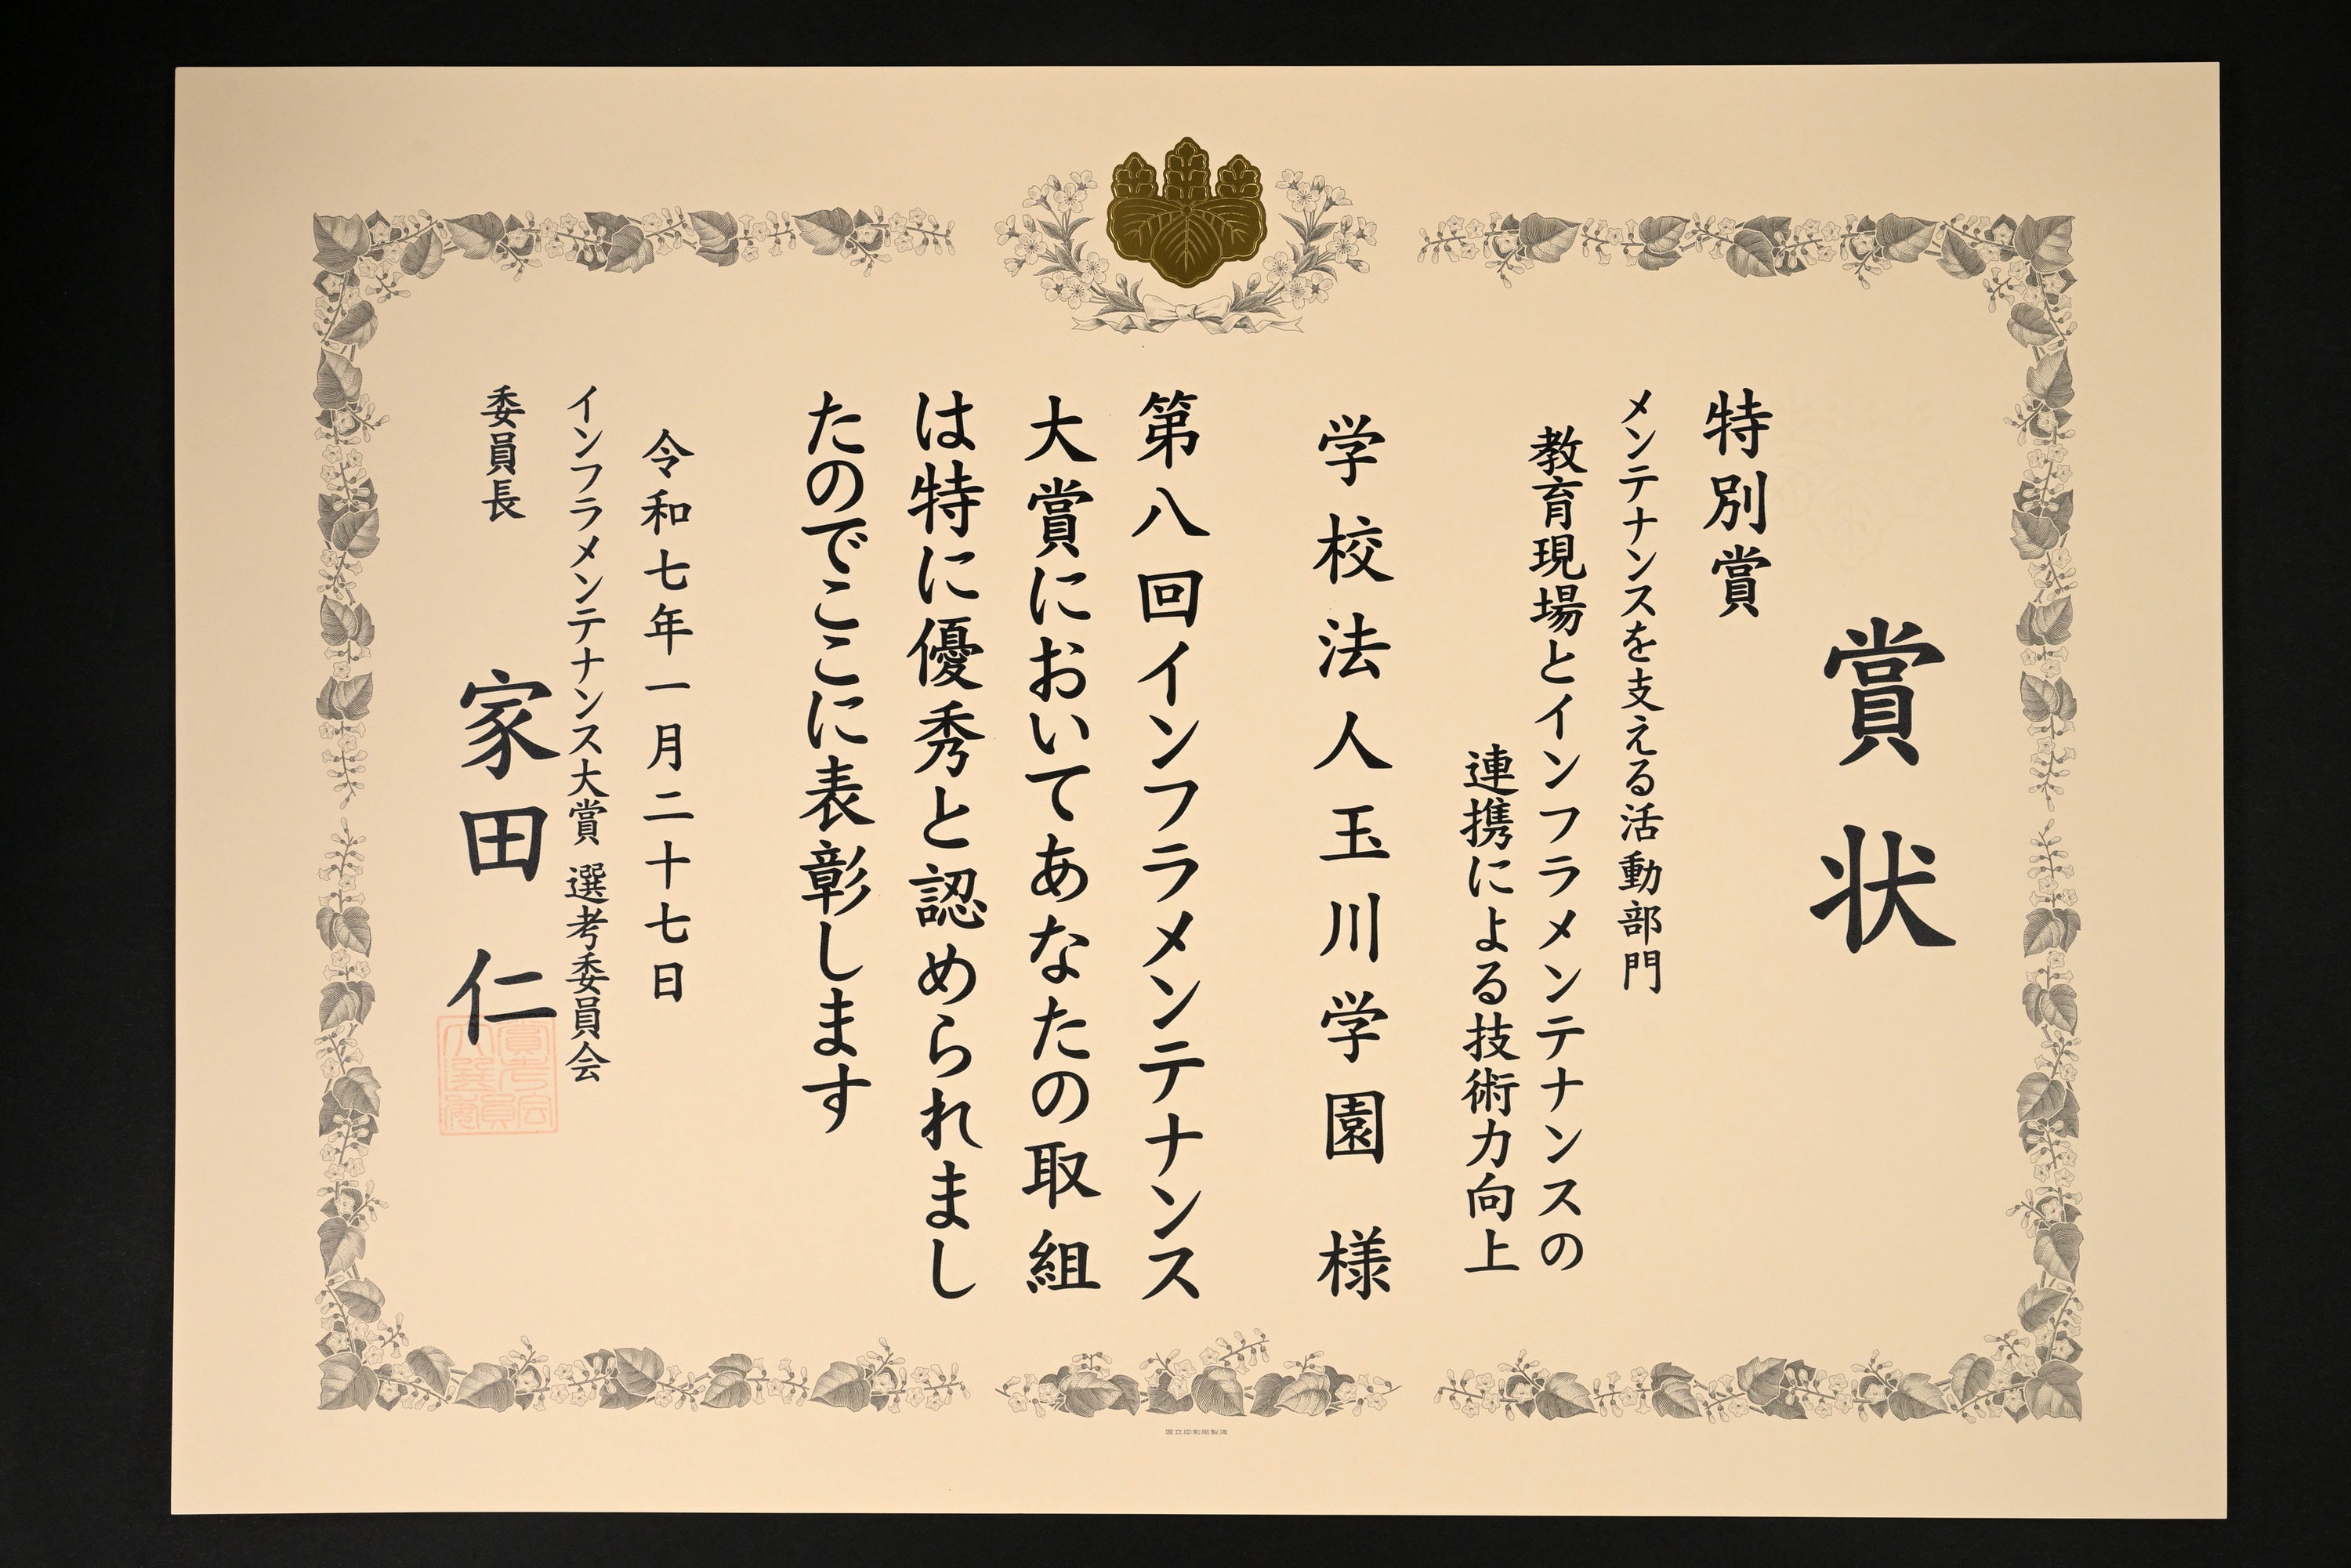 賞状
特別賞
メンテナンスを支える活動部門
教育現場とインフラメンテナンスの
連携による技術力向上
学校法人玉川学園 様
第八回インフラメンテナンス
大賞においてあなたの取組
は特に優秀と認められまし
たのでここに表彰します
令和七年一月二十七日
インフラメンテナンス大賞 選考委員会
委員長 家田 仁
国立印刷局製造